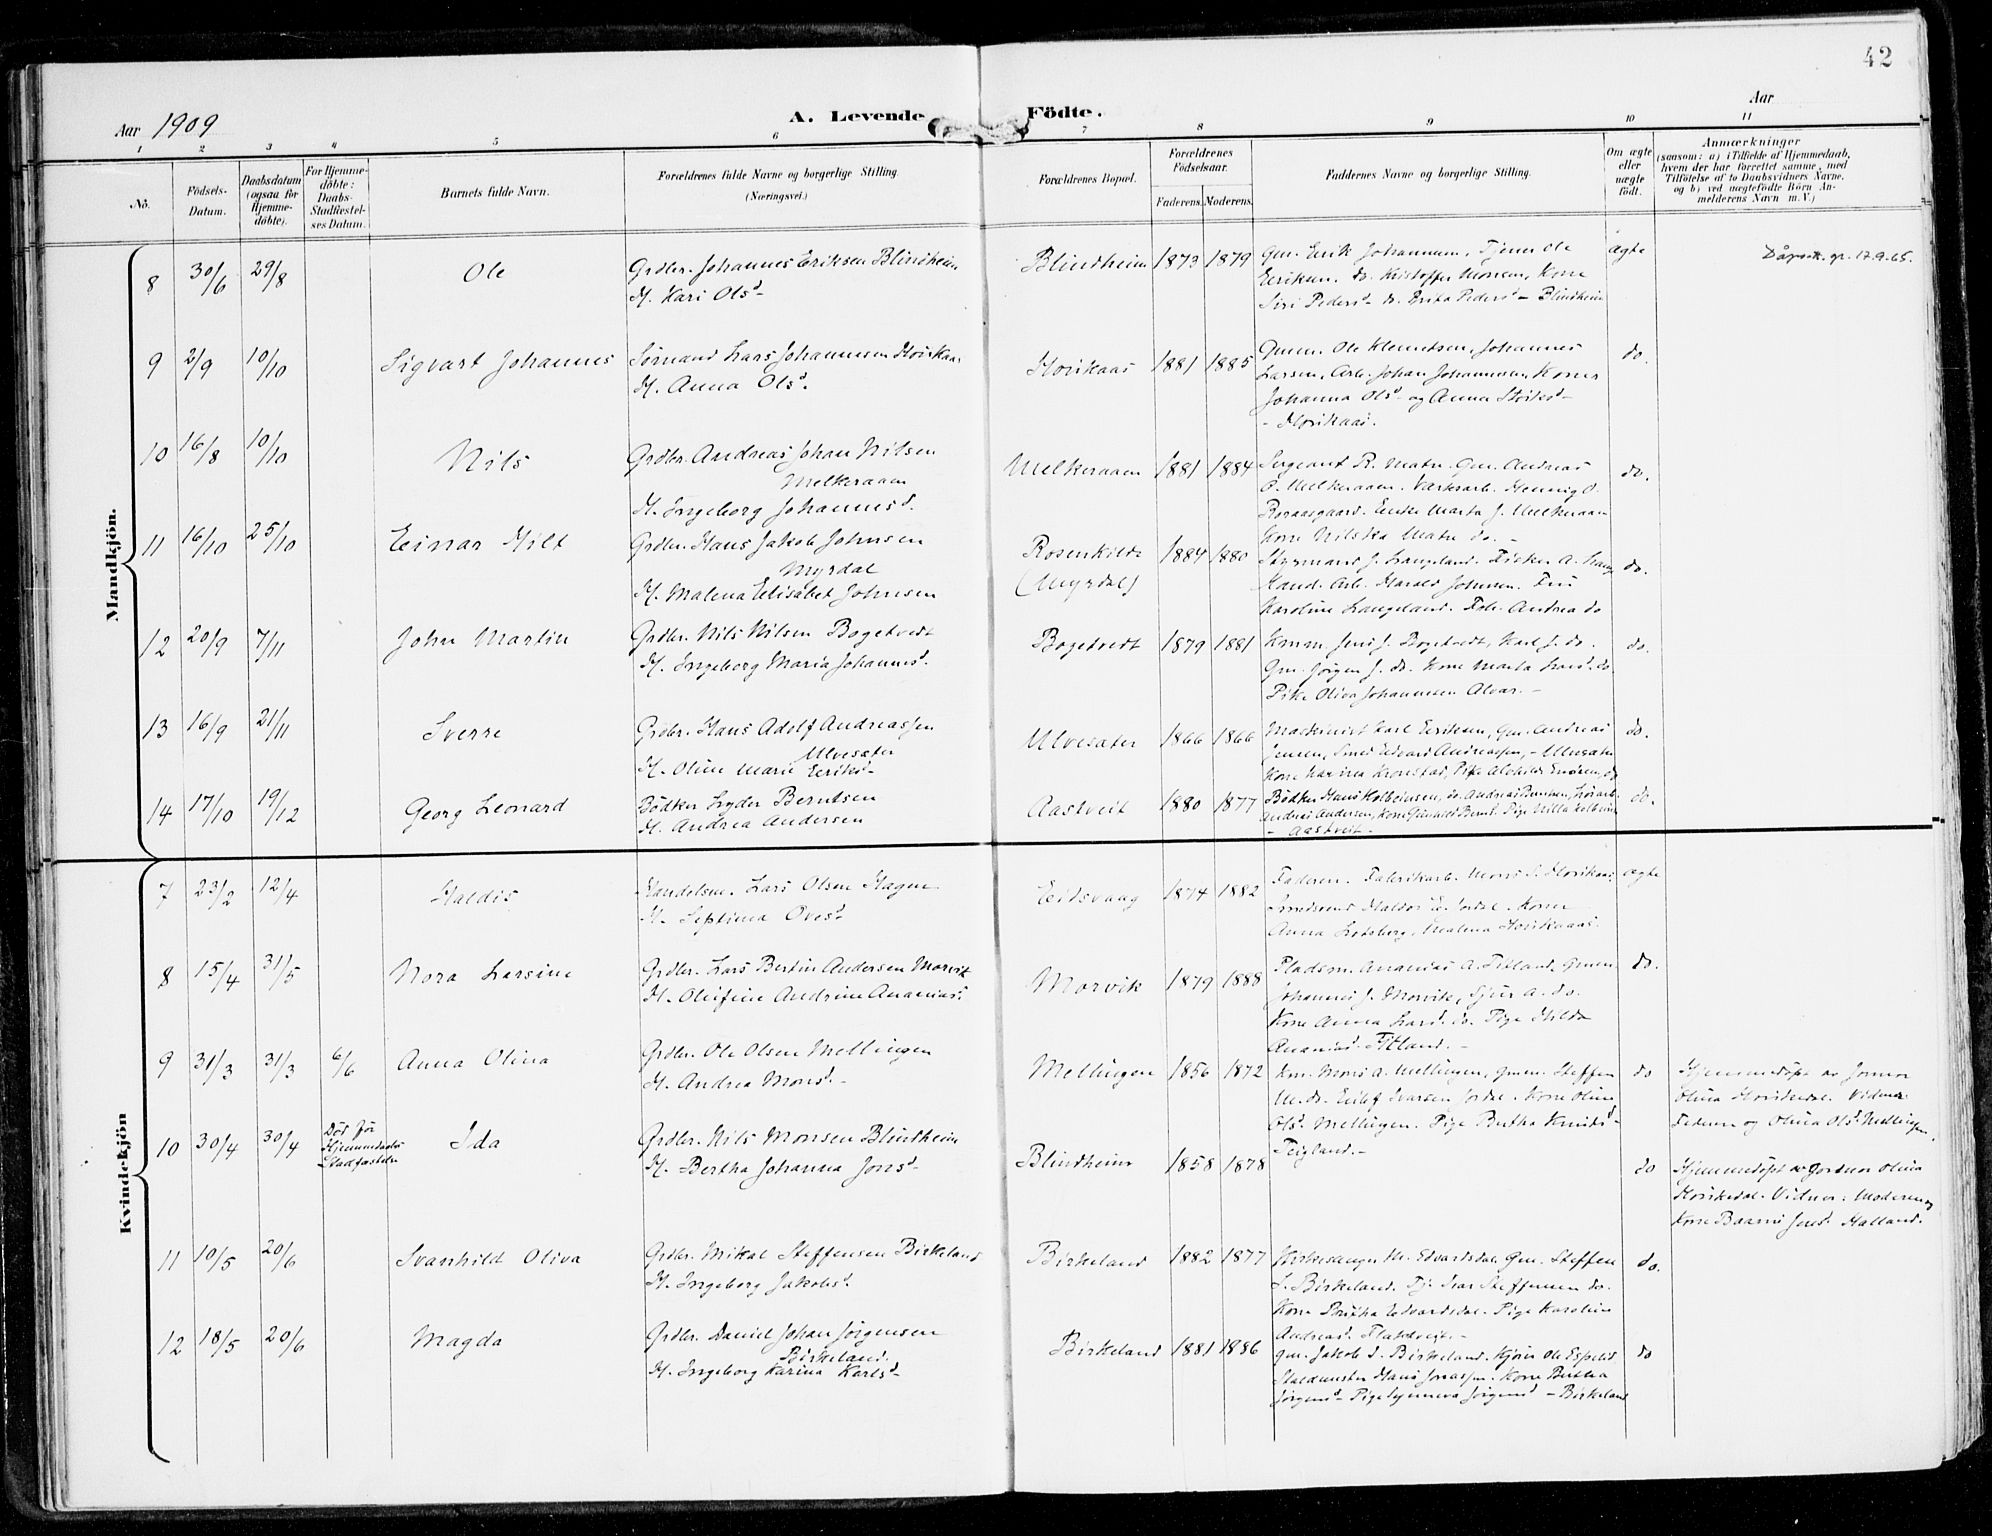 42
Aar 1909
A. Levende Födte.
Aar
1 2 3 4 5 6 7 8 9 10 11
No.
Födsels-Datum.
Daabsdatum (ogsaa for Hjemme-döbte).
For Hjemme-döbte: Daabs-Stadfæstel-ses Datum.
Barnets fulde Navn.
Forældrenes fulde Navne og borgerlige Stilling.
(Næringsvei.)
Forældrenes Bopæl.
Forældrenes Födselsaar.
Faderens. Moderens.
Faddernes Navne og borgerlige Stilling.
Om ægte eller uægte födt.
Anmærkninger
(saasom: a) i Tilfælde af Hjemmedaab,
hvem der har forrettet samme, med
Tilföielse af to Daabsvidners Navne,
og b) ved uægtefödte Börn An-
melderens Navn m. V.)
Mandkjön.
8 30/6 29/8 Ole
Grdbr. Johannes Eriksen Blindheim
H. Kari Olsd
Blindheim 1873 1879
Gm. Erik Johannesn, Tjener Ole
Eriksen. do. Kristoffer Monsen, Kone
Siri Pedersd do. Brita Pedersd - Blindheim
ægte
Dåpsatt. gr. 17.9.65.
9 2/9 10/10 Sigvart Johannes
Sömand Lars Johannesen Horikaas
H. Anna Olsd.
Horikaas 1881 1885
Gmen. Ole Klemetsen, Johannes
Larsen, Arb. Johan Johannesen, Koner
Johanna Olsd og Anna
- Horikaas.
do.
10 16/8 10/10 Nils
Grdbr. Andreas Johan Nilsen
Melkeraaen
H. Ingeborg Johannesd.
Melkeraaen 1881 1884
Sergeant R. Matre. Gm. Andreas
O. Melkeraaen. Værkarb. Hennig O.
Roraasgaard. Enke Marta J. Melkeraaen
Kone Nilska Matre do. -
do.
11 16/10 25/10 Einar Hilt
Grdbr. Hans Jakob Johnsen
Myrdal
H. Malena Elisabet Johnsen
Rosenkilde
(Myrdal)
1884 1880
Styrmand J. Langeland. Fisker A. Haug
Kand. Arb. Harald Johnsen. Fru
Karoline Langeland. Frk. Andrea do
do.
12 20/9 7/11 John Martin
Grdbr. Nils Nilsen Bogetvedt
H. Ingeborg Maria Johannesd.
Bogetvedt 1879 1881
Kman Jens J. Bogetvedt, Karl J. do.
Gm. Jörgen J. do. Kone Marta Larsd. do.
Pike Oliva Johannesen Alvar. -
do.
13 16/9 21/11 Sverre
Grdbr. Hans Adolf Andreassen
Ulvesæter
H. Oline Marie Eriksd -
Ulvesæter 1866 1866
Maskinist Karl Eriksen, Gm. Andreas
Jensen, Smed Edvard Andreassen, - Ulvesæter
Kone Karina Kronstad, Pike Alvhilde do
do.
14 17/10 19/12 Georg Leonard
Bödker Lyder Berntsen
H. Andrea Andersen
Aastveit 1880 1877
Bödker Hans Kolbeinsen, do. Andreas Berntsen,
Andreas Andersen, Kone Gunhild Bernt. Pige Villa Kolbeins
- Aastveit -
do.
Kvindekjön
7 23/2 12/4 Haldis
Handelsm. Lars Olsen Hagen
H. Septima Ovesd.
Eidsvaag 1874 1882
Faderen. Fabrikarb. Mons S. Horikaas,
Smedsvend Haldor E. Jordal. Kone
Anna Lotsberg, Malena Horikaas.
ægte
8 15/4 31/5 Nora Larsine
Grdbr. Lars Bertin Andersen Morvik
H. Olufine Andrine Ananiasd.
Morvik 1879 1888
Pladsm. Ananias A. Titland, Gmen
Johannes J. Morvik, Sjur A. do.
Kone Anna Larsd. do. Pige Hilda
Ananiasd. Titland. -
do.
9 31/3 31/3 6/6 Anna Olina
Grdbr. Ole Olsen Mellingen
H. Andrea Monsd. -
Mellingen 1856 1872
Km. Mons A. Mellingen, Gmen. Steffen
M. do. Eilef Ivarsen Jordal. Kone Oline
Olsd. Mellingen. Pige Bertha Knutsd -
Teigland. -
do
Hjemmedöpt av Jormor
Olina Horikedal. Vidner
Faderen og Olina Olsd. Mellingen.
10 30/4 30/4
Död för
Hjemmdaabs
Stadfæstelse
Ida
Grdbr. Nils Monsen Blindheim
H. Bertha Johanna Jonsd -
Blindheim 1858 1878
do
Hjemmedöpt av Jordmor Olina
Horikedal. Vidner: Moderen og
Kone Jensd. Halland.
11 10/5 20/6 Svanhild Oliva
Grdbr. Mikal Steffensen Birkeland
H. Ingeborg Jakobsd.
Birkeland 1882 1877
Kirkesanger M. Edvardsdal, Gm. Steffen
S. Birkeland. Tj. Ivar Steffensen do.
Kone Birtha Edvardsdal. Pige Karoline
Andreasd. Flaktveit. -
do.
12 18/5 20/6 Magda
Grdbr. Daniel Johan Jörgensen
Birkeland.
H. Ingeborg Karina Karlsd -
Birkeland 1881 1886
Gm. Jakob J. Birkeland. Kjörer Ole Espelid
Staldmester Hans Jonassen. Kone Bertha
Jörgensd - Pige Jörgensd - Birkeland
do